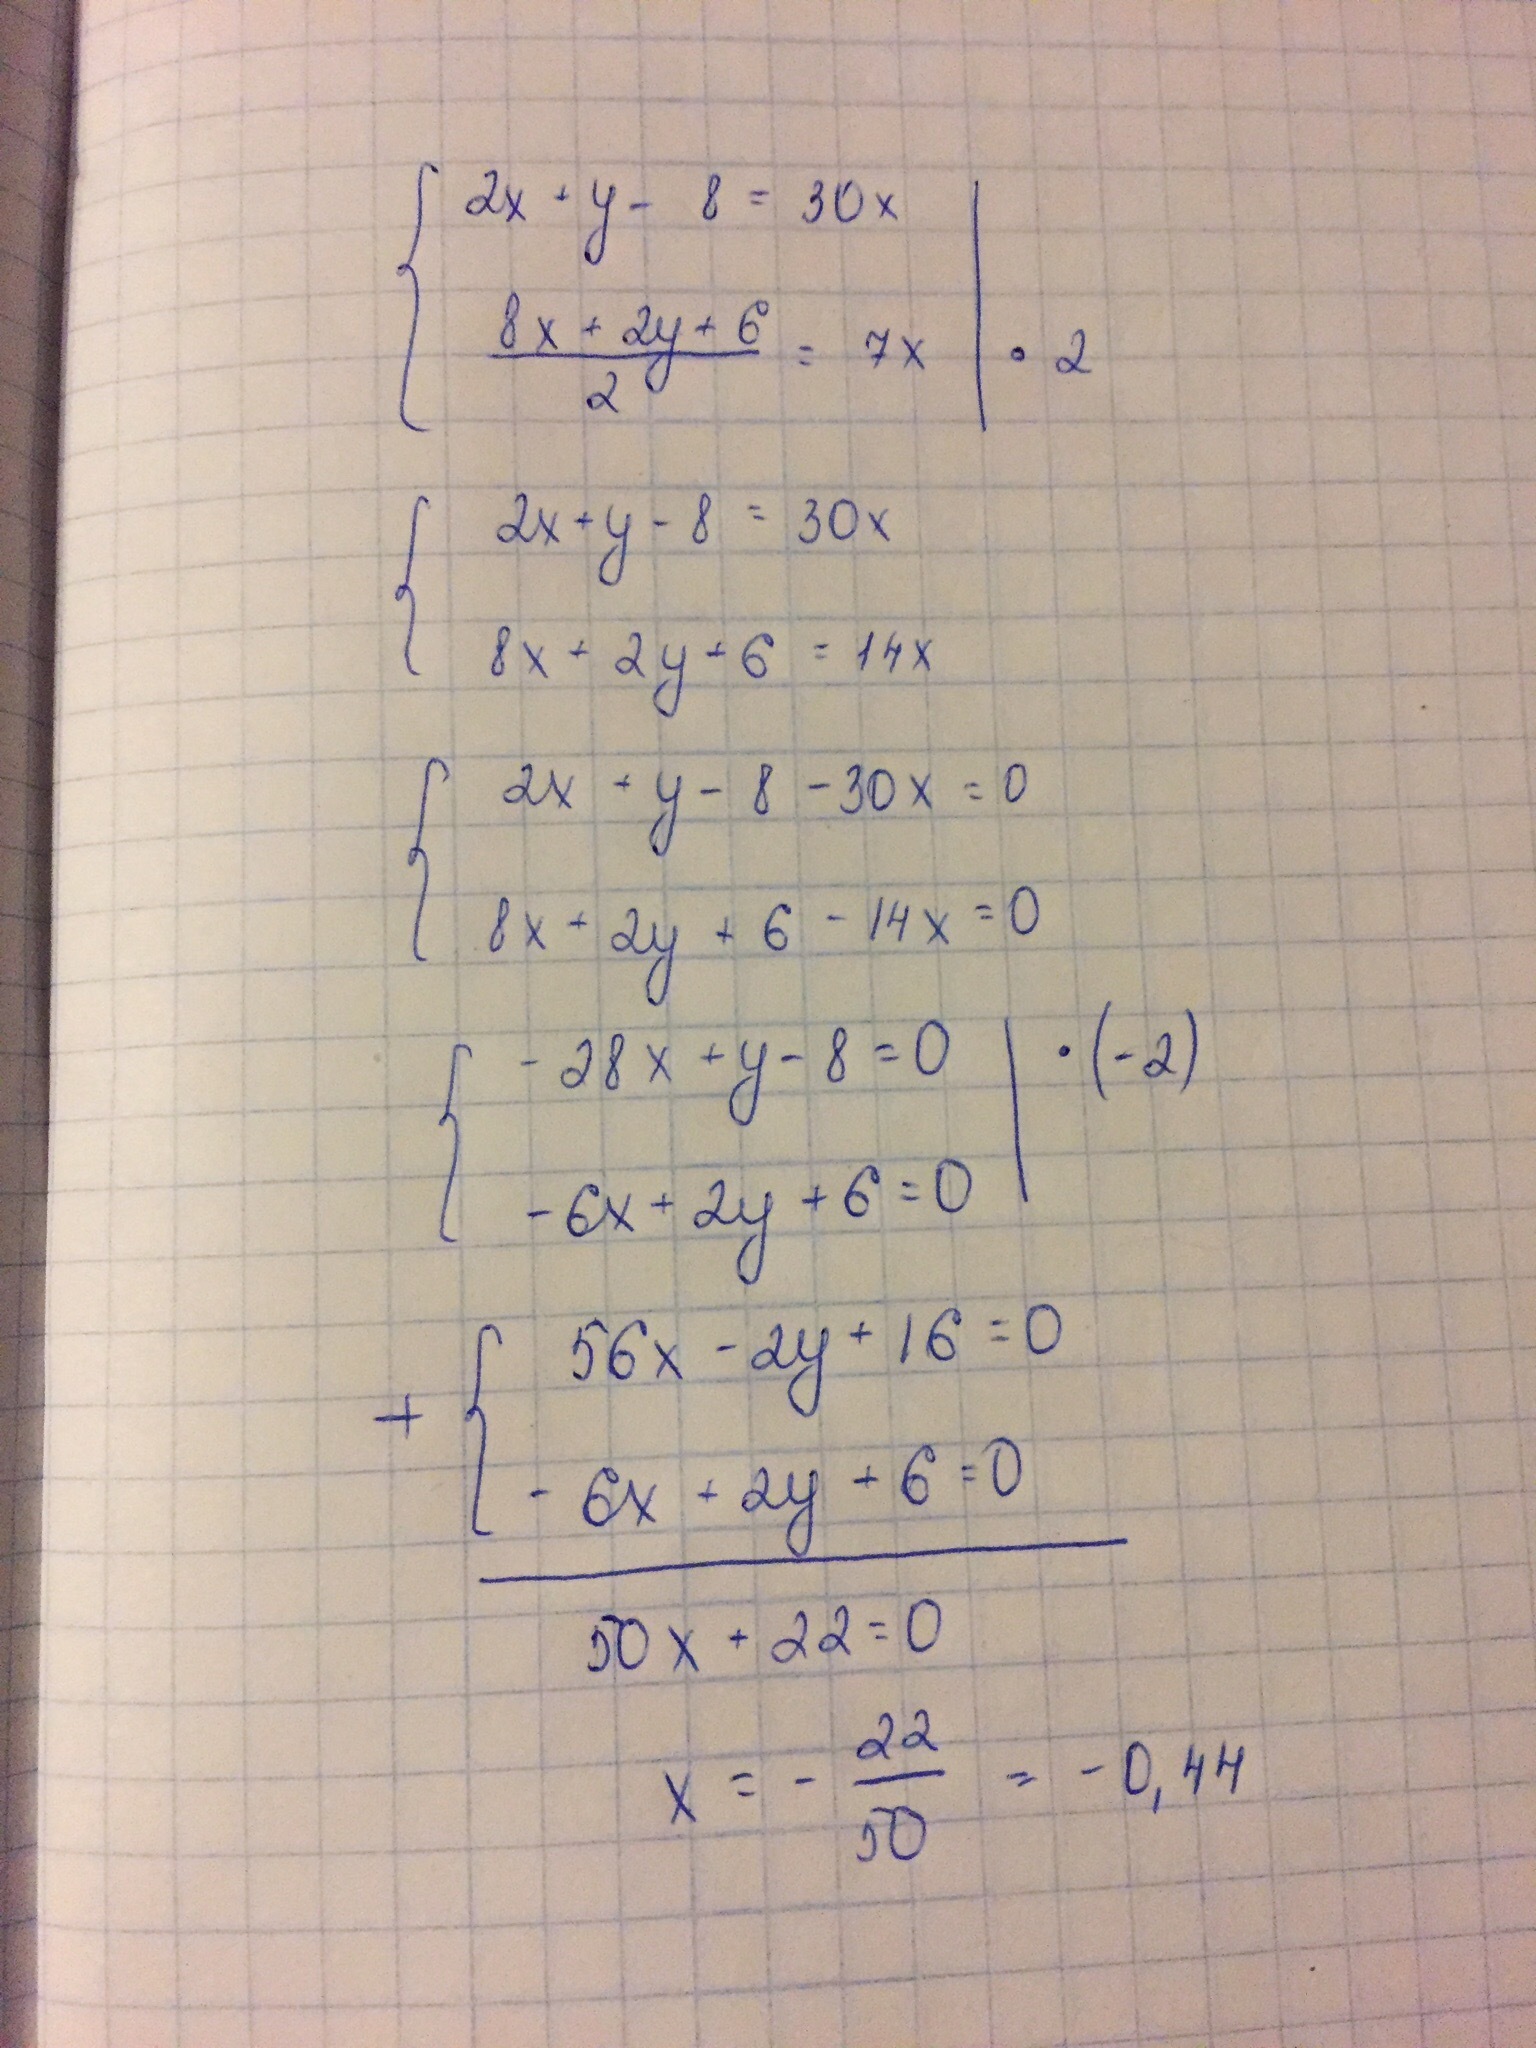 2x + y - 8 = 30x
8x + 2y + 6
2
= 7x | • 2
2x + y - 8 = 30x
8x + 2y + 6 = 14x
2x + y - 8 - 30x = 0
8x + 2y + 6 - 14x = 0
-28x + y - 8 = 0 | • (-2)
-6x + 2y + 6 = 0
56x - 2y + 16 = 0
+
-6x + 2y + 6 = 0
50x + 22 = 0
x = - 22/50 = -0,44